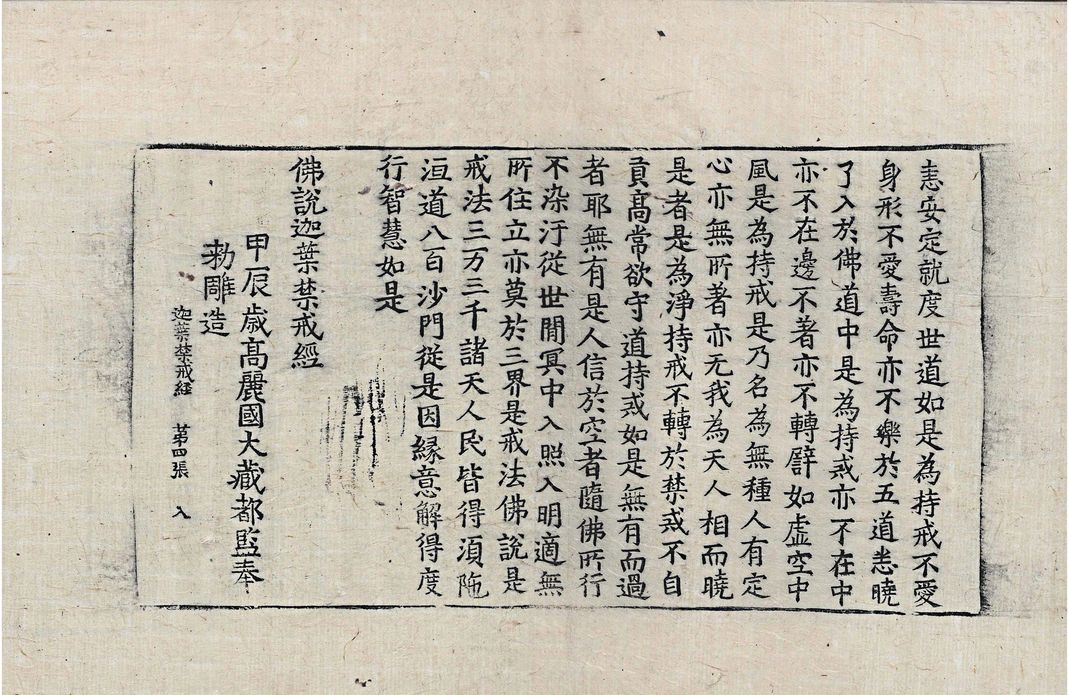 恚安定就度世道如是為持戒不愛
身形不愛壽命亦不樂於五道悉曉
了入於佛道中是為持戒亦不在中
亦不在邊不著亦不轉譬如虛空中
風是為持戒是乃名為無種人有定
心亦無所著亦无我為天人相而曉
是者是為淨持戒不轉於禁戒不自
貢高常欲守道持戒如是無有而過
者耶無有是人信於空者隨佛所行
不染汙從世間冥中入照入明適無
所住立亦莫於三界是戒法佛說是
戒法三万三千諸天人民皆得湏陁
洹道八百沙門從是因緣意解得度
行智慧如是
佛說迦葉禁戒經
甲辰歲高麗國大藏都監奉
勑雕造
迦葉禁戒經 苐四張 入